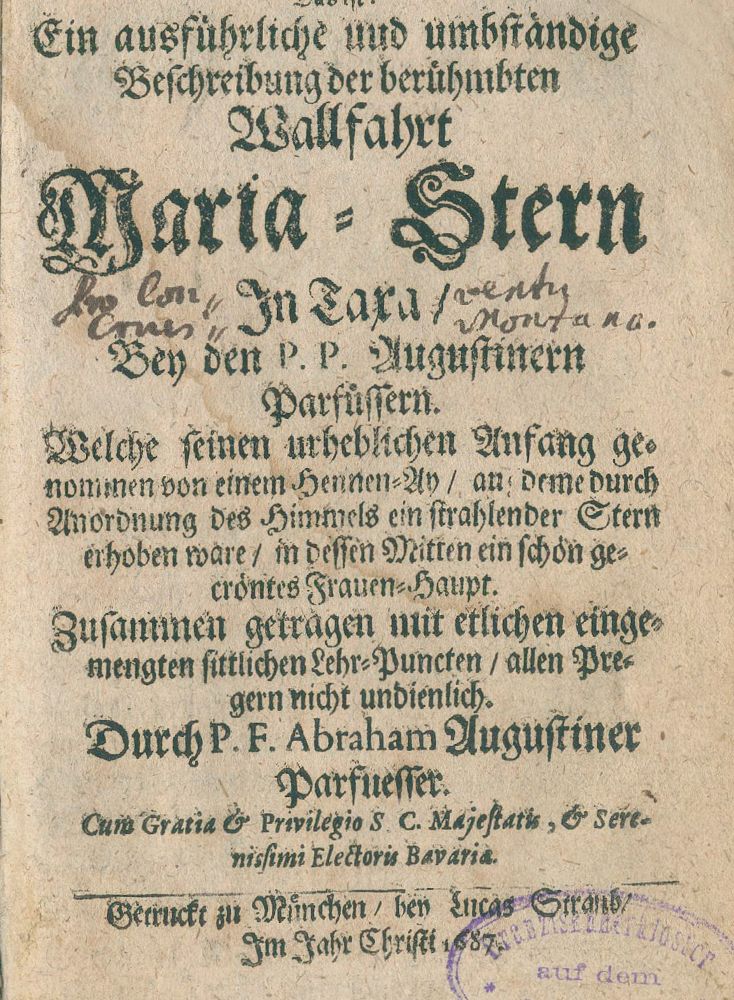 Das ist:
Ein ausführliche und umbständige
Beschreibung der berühmbten
Wallfahrt
Maria-Stern
In Taxa /
Pro Con„ ventu
Crucis„ Montano.
Bey den P. P. Augustinern
Parfüssern.
Welche seinen urheblichen Anfang ge-
nommen von einem Hennen-Ay / an deme durch
Anordnung des Himmels ein strahlender Stern
erhoben ware / in dessen Mitten ein schön ge-
cröntes Frauen-Haupt.
Zusammen getragen mit etlichen einge-
mengten sittlichen Lehr-Puncten / allen Pre-
gern nicht undienlich.
Durch P. F. Abraham Augustiner
Parfuesser.
Cum Gratia & Privilegio S. C. Majestatis, & Sere-
nissimi Electoris Bavariæ.
Getruckt zu München / bey Lucas Straub /
Im Jahr Christi 1687.
Franziskanerkloster
* auf dem